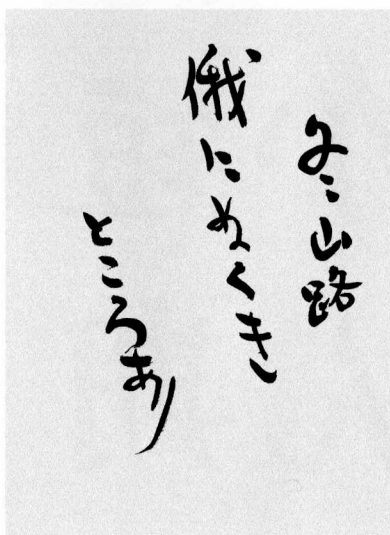 冬山路
俄にぬくき
ところあり